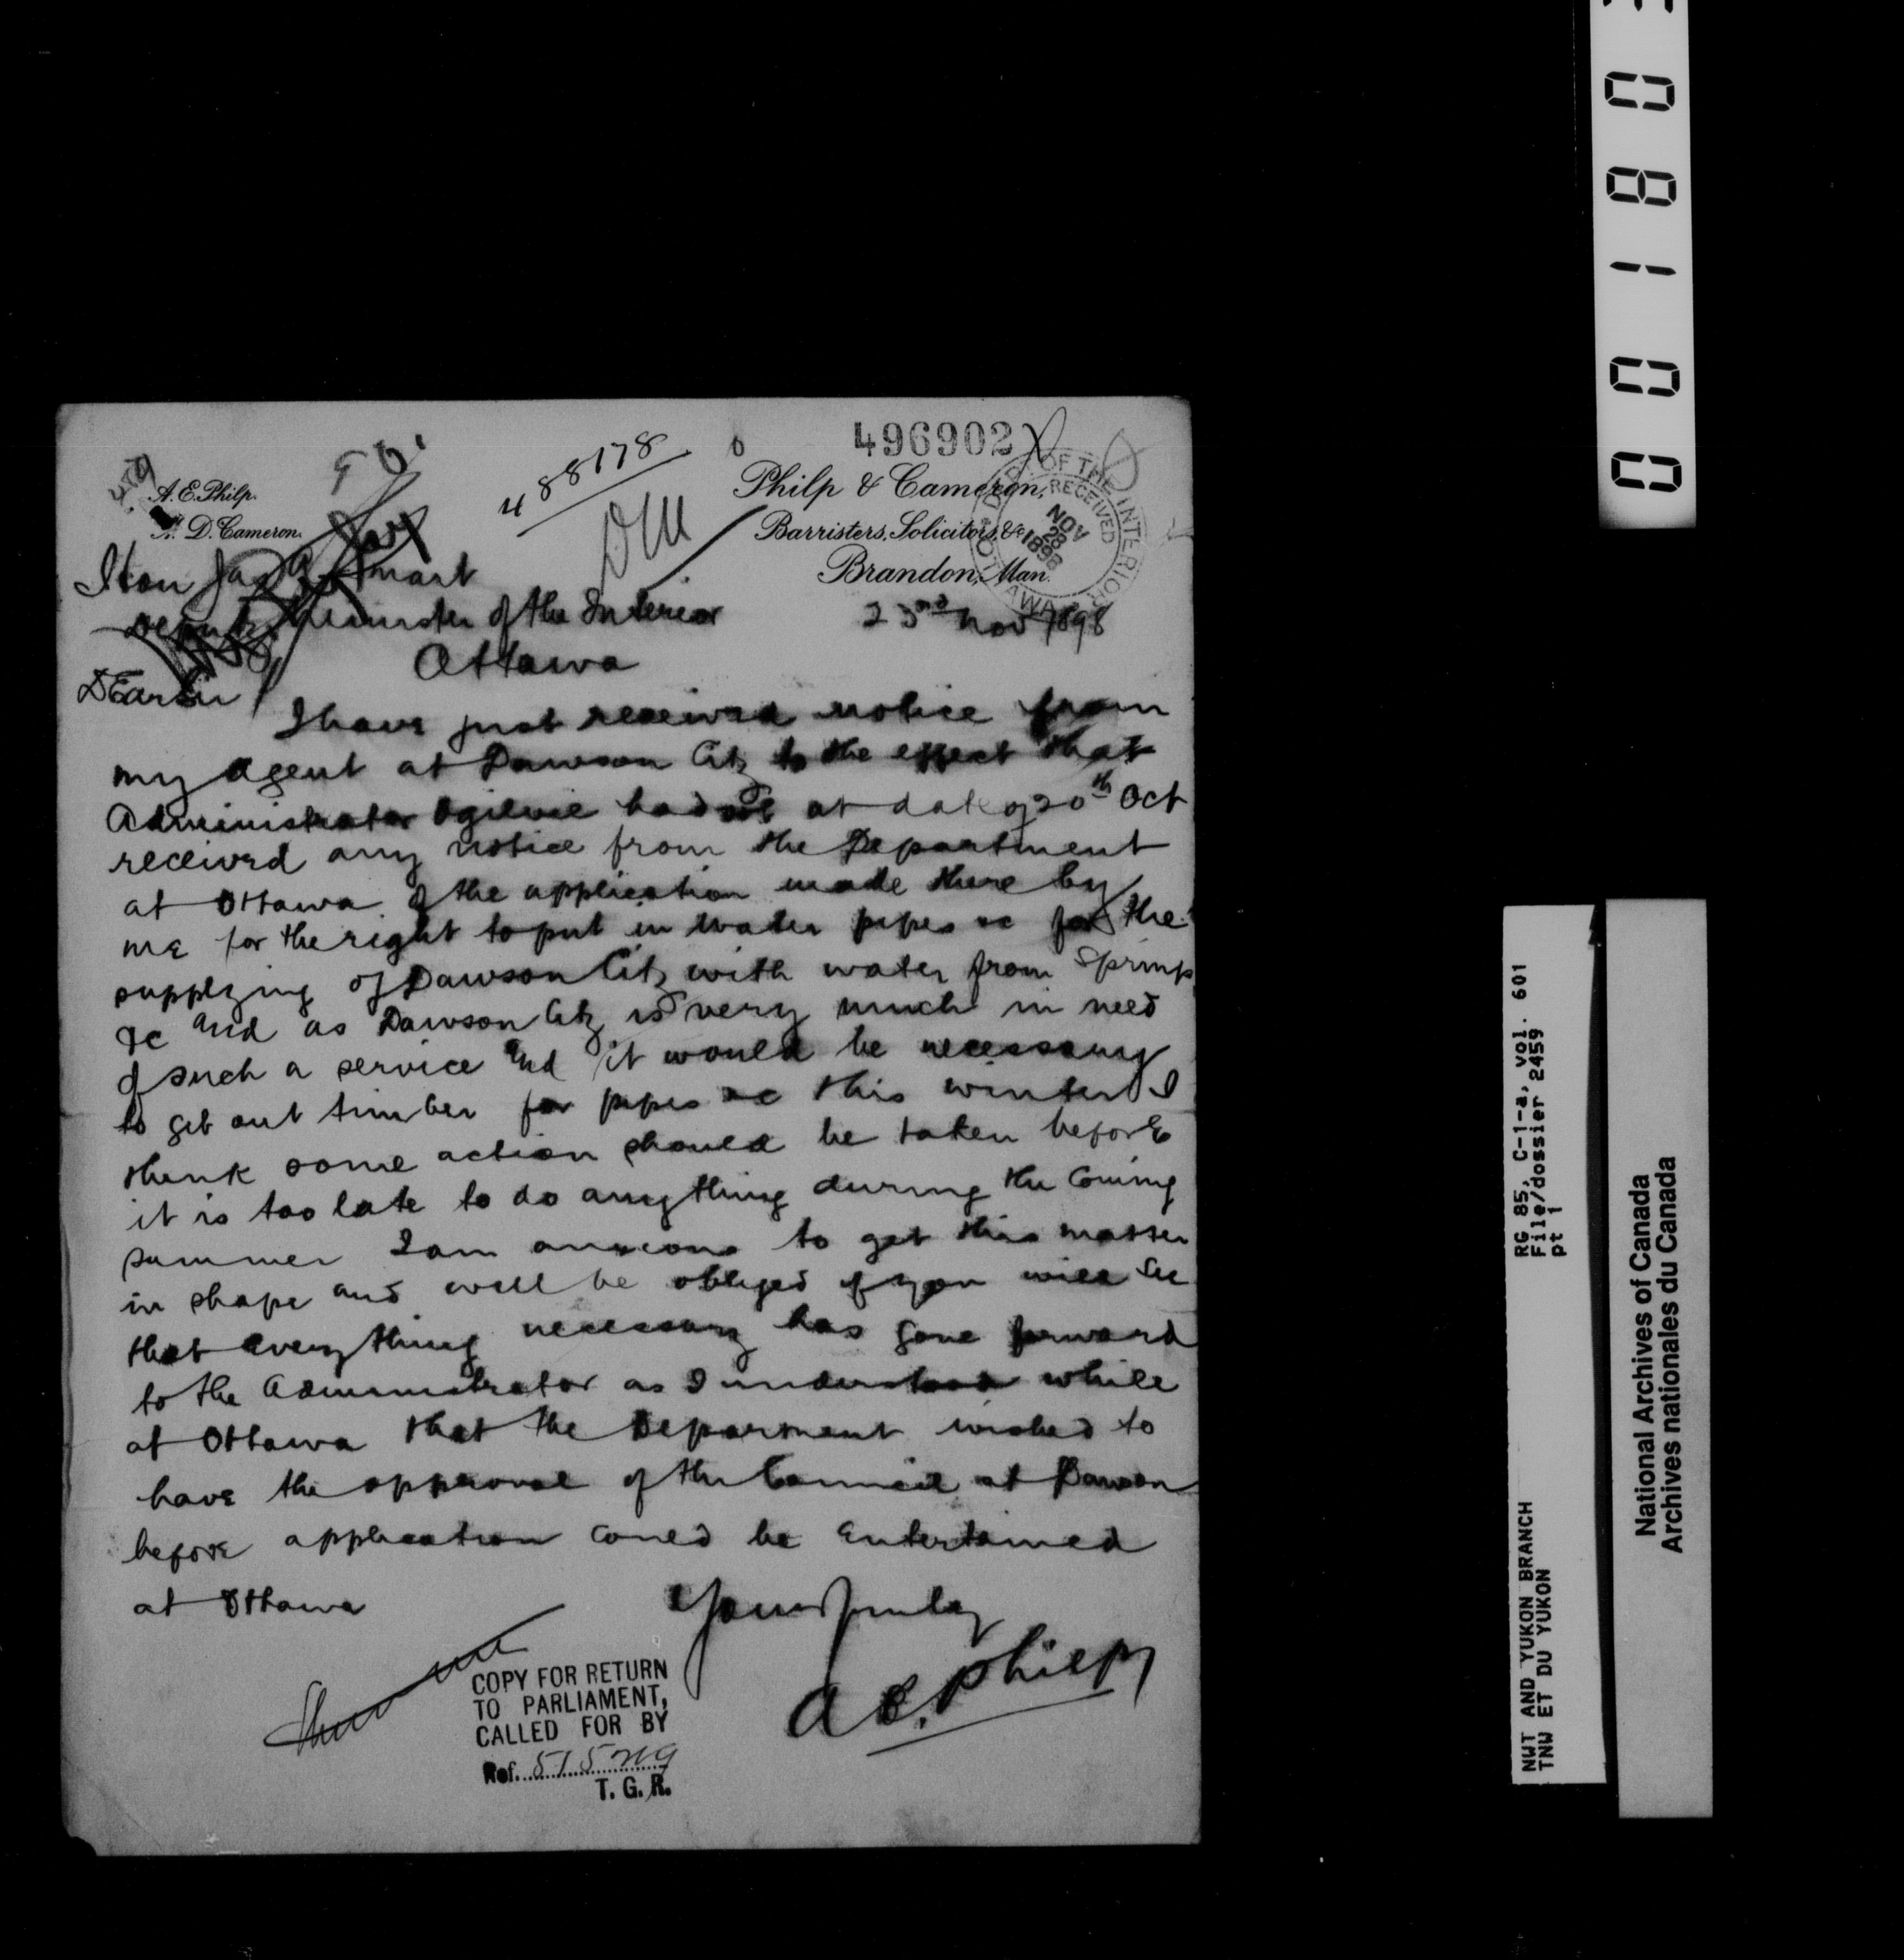 496902
488178
A. E. Philp.
D. Cameron.
Philp & Cameron,
Barristers, Solicitors, &c
Brandon, Man.
DEPT. OF THE INTERIOR
RECEIVED
NOV
28
1898
OTTAWA
Hon Jas A Smart
Deputy Minister of the Interior
23rd Nov 1898
Ottawa
DEar Sir
I have just received notice from
my agent at Dawson City to the effect that
Administrator Ogilvie had not at date of 20th Oct
received any notice from the Department
at Ottawa of the application made there by
me for the right to put in water pipes &c for the
supplying of Dawson City with water from Springs
&c and as Dawson City is very much in need
of such a service and it would be necessary
to get out timber for pipes &c this winter I
think some action should be taken before
it is too late to do anything during the Coming
summer I am anxious to get this matter
in shape and will be obliged if you will see
that everything necessary has gone forward
to the Administrator as I understood while
at Ottawa that the Deparment wished to
have the approval of the Council at Dawson
before application could be Entertained
at Ottawa
Yours truly
A E. Philp
COPY FOR RETURN
TO PARLIAMENT,
CALLED FOR BY
Ref. 515729
T. G. R.
00180
RG 85, C-1-a, vol. 601
File/dossier 2459
pt 1
NWT AND YUKON BRANCH
TNW ET DU YUKON
National Archives of Canada
Archives nationales du Canada